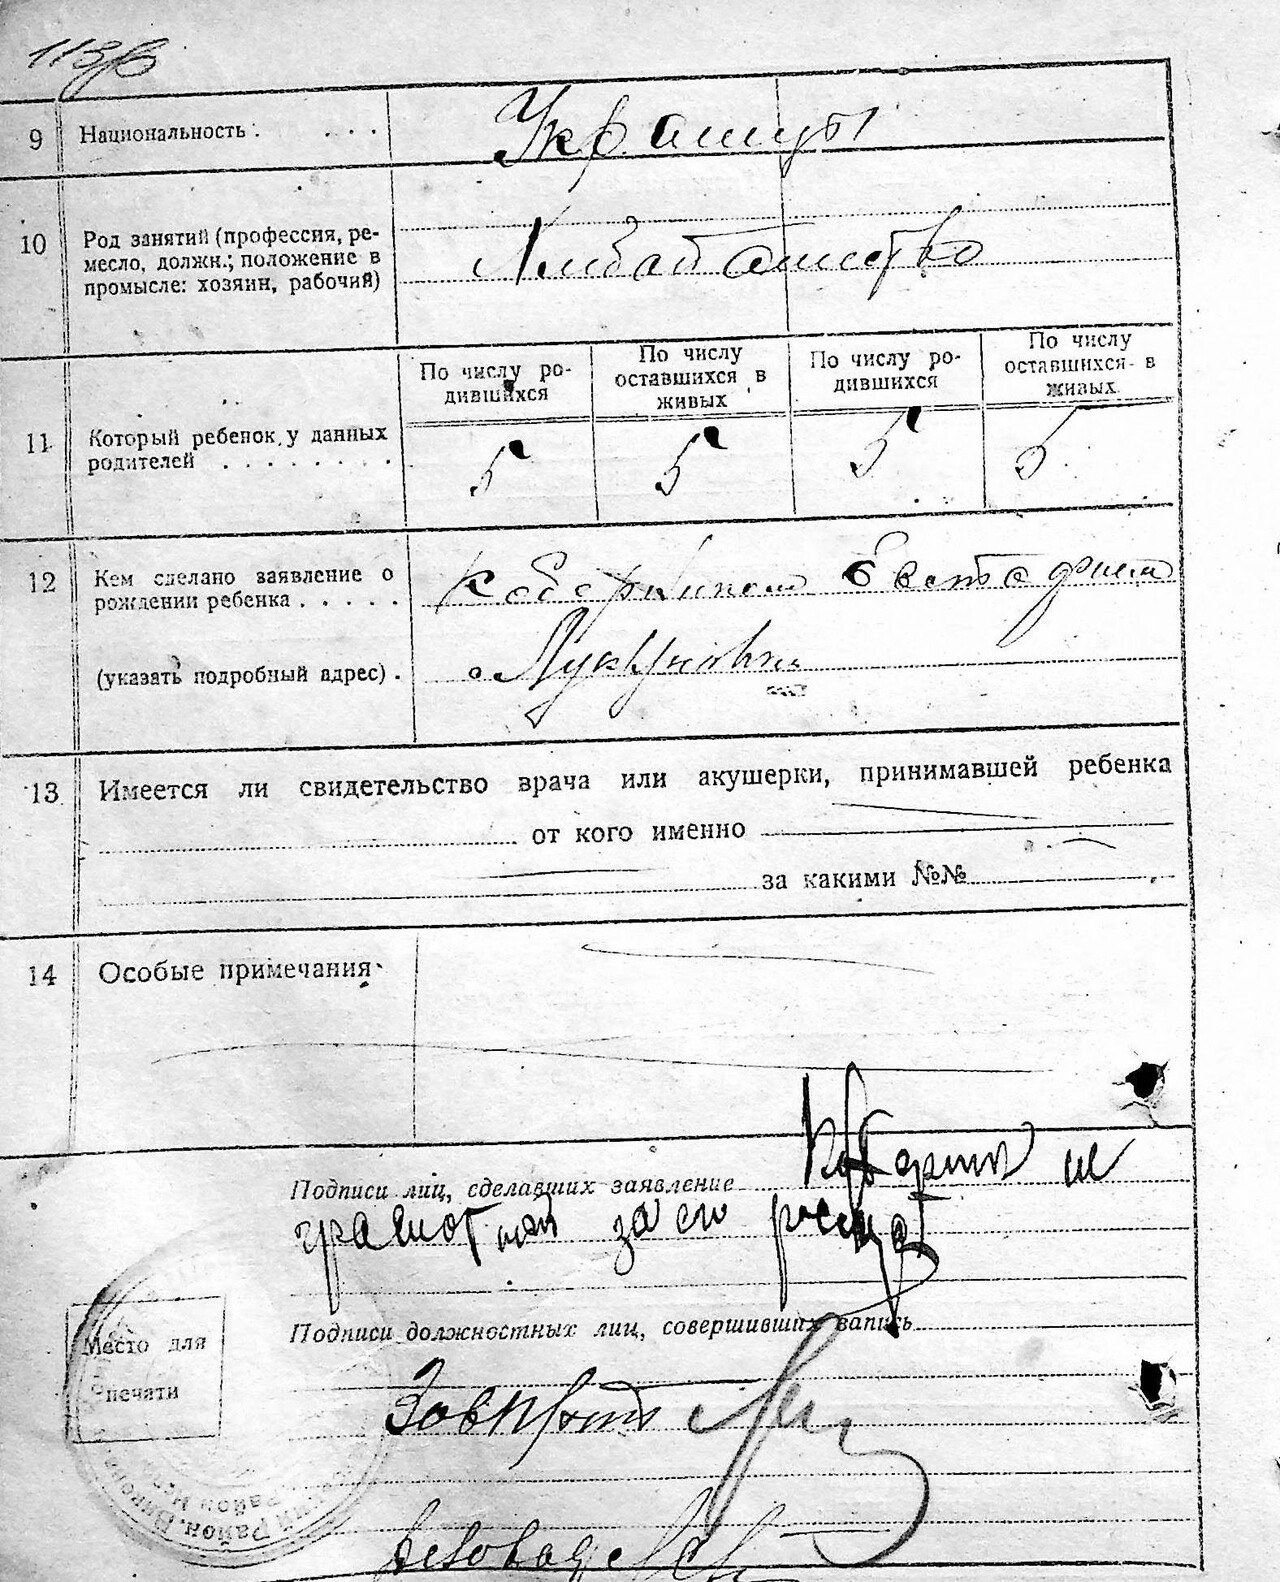 113 об
9 Национальность . . . . Украинцы
10 Род занятий (профессия, ре-
месло, должн.; положение в
промысле: хозяин, рабочий)
Хлибопашество
По числу ро-
дившихся
По числу
оставшихся в
живых
По числу ро-
дившихся
По числу
оставшихся в
живых
11 Который ребенок у данных
родителей . . . . . . . .
5 5 5 5
12 Кем сделано заявление о
рождении ребенка . . . . .
Евстафием
(указать подробный адрес) .
13 Имеется ли свидетельство врача или акушерки, принимавшей ребенка
от кого именно
за какими №№
14 Особые примечания
Подписи лиц, сделавших заявление
грамотный за его
Подписи должностных лиц, совершивших запись
Место для
печати